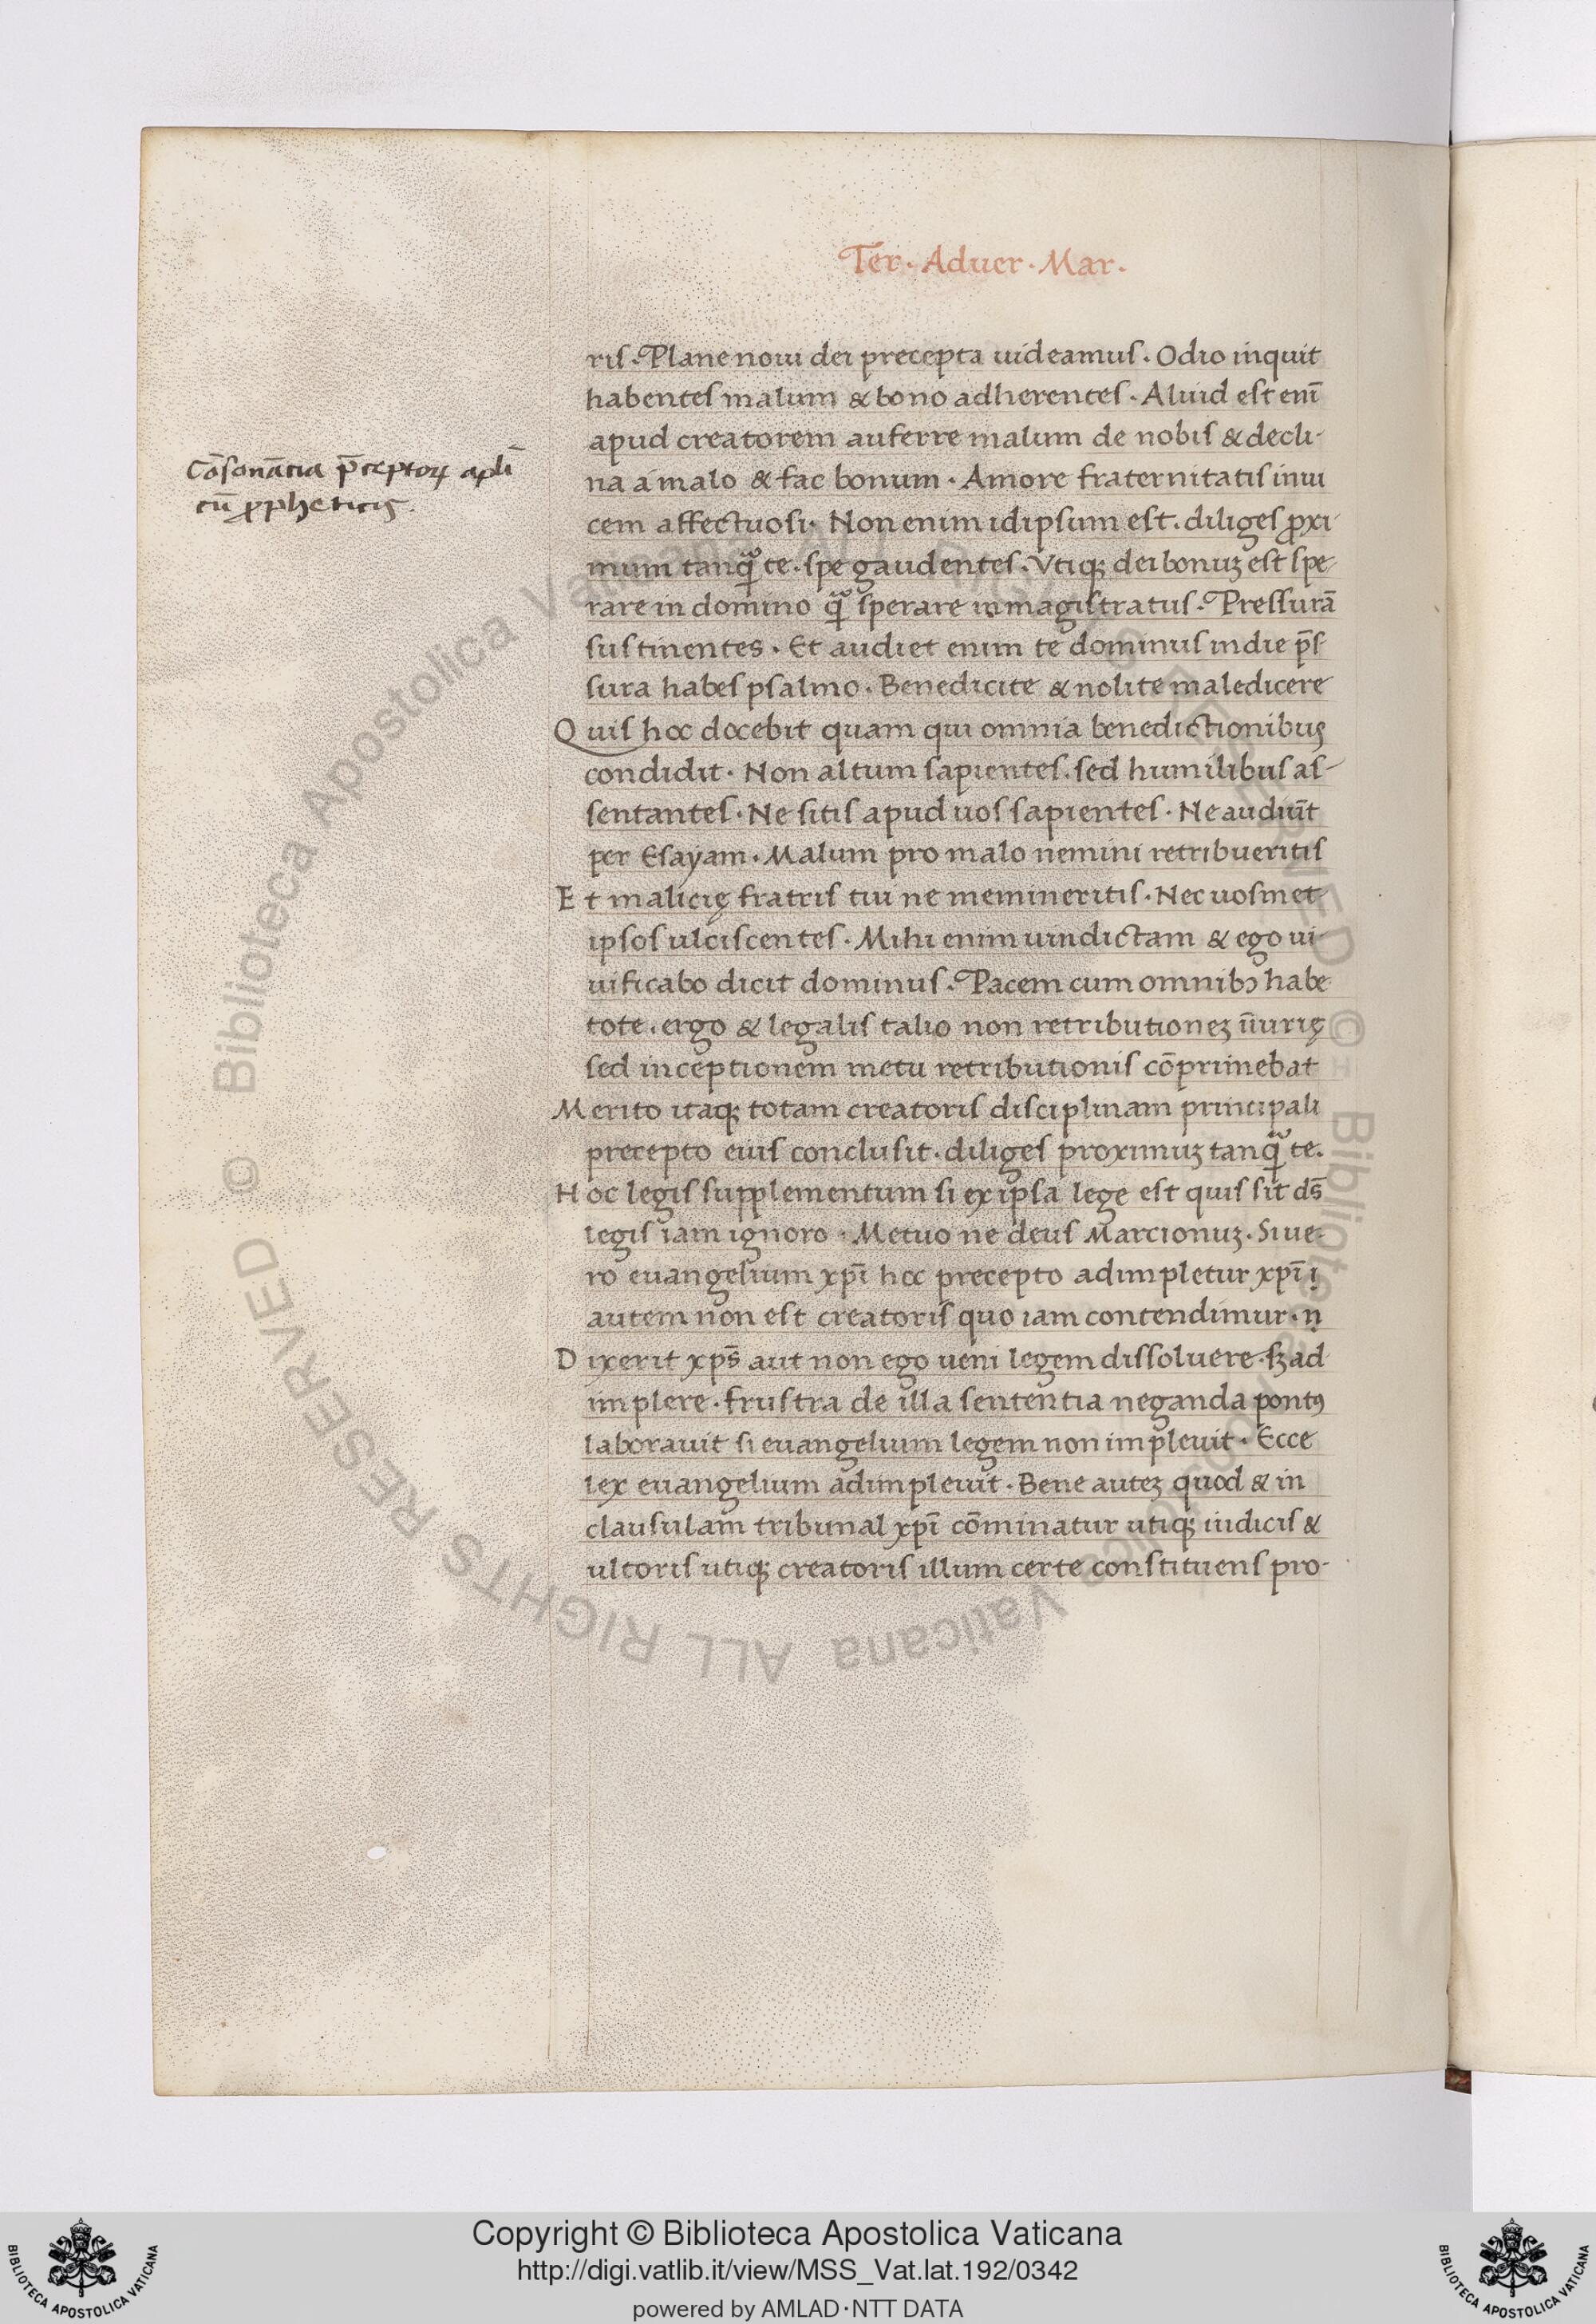 Ter · Aduer · Mar ·
ris · Plane noui dei precepta uideamus · Odio inquit
habentes malum & bono adherentes · Aluid est eni̅
apud creatorem auferre malum de nobis & decli-
na a malo & fac bonum · Amore fraternitatis inui
cem affectuosi · Non enim idipsum est . diliges ꝓxi-
mum tanqͣ te . spe gaudentes . Vtiqꝫ dei bonuꝫ est spe-
rare in domino qͣ sperare in magistratus · Pressura̅
sustinentes . Et audiet enim te dominus in die p̅s-
sura habes psalmo . Benedicite & nolite maledicere
Quis hoc docebit quam qui omnia benedictionibus
condidit · Non altum sapientes . sed humilibus as-
sentantes · Ne sitis apud uos sapientes · Ne audiu̅t
per Esayam . Malum pro malo nemini retribueritis
Et malicię fratris tui ne memineritis · Nec uosmet
ipsos ulciscentes · Mihi enim uindictam & ego ui-
uificabo dicit dominus . Pacem cum omnibꝫ habe
tote . ergo & legalis talio non retributioneꝫ iu̅rię
sed inceptionem metu retributionis co̅primebat
Merito itaqꝫ totam creatoris disciplinam principali
precepto eius conclusit . diliges proximuꝫ tanqͣ te .
Hoc legis supplementum si ex ipsa lege est quis sit ds̅
legis iam ignoro · Metuo ne deus Marcionuꝫ . Si ue-
ro euangelium xpi̅ hoc precepto adimpletur xpi̅
autem non est creatoris quo iam contendimur · n
Dixerit xps̅ aut non ego ueni legem dissoluere . sꝫ ad
implere . frustra de illa sententia neganda pontꝰ
laborauit si euangelium legem non impleuit · Ecce
lex euangelium adimpleuit . Bene auteꝫ quod & in
clausulam tribunal xpi̅ co̅minatur utiqꝫ iudicis &
ultoris utiqꝫ creatoris illum certe constituens pro-
Co̅sona̅cia p̅ceptoꝝ apli̅
cu̅ ꝓpheticis .
© Biblioteca Apostolica Vaticana ALL RIGHTS RESERVED
Copyright © Biblioteca Apostolica Vaticana
http://digi.vatlib.it/view/MSS_Vat.lat.192/0342
powered by AMLAD·NTT DATA
BIBLIOTECA APOSTOLICA VATICANA
BIBLIOTECA APOSTOLICA VATICANA